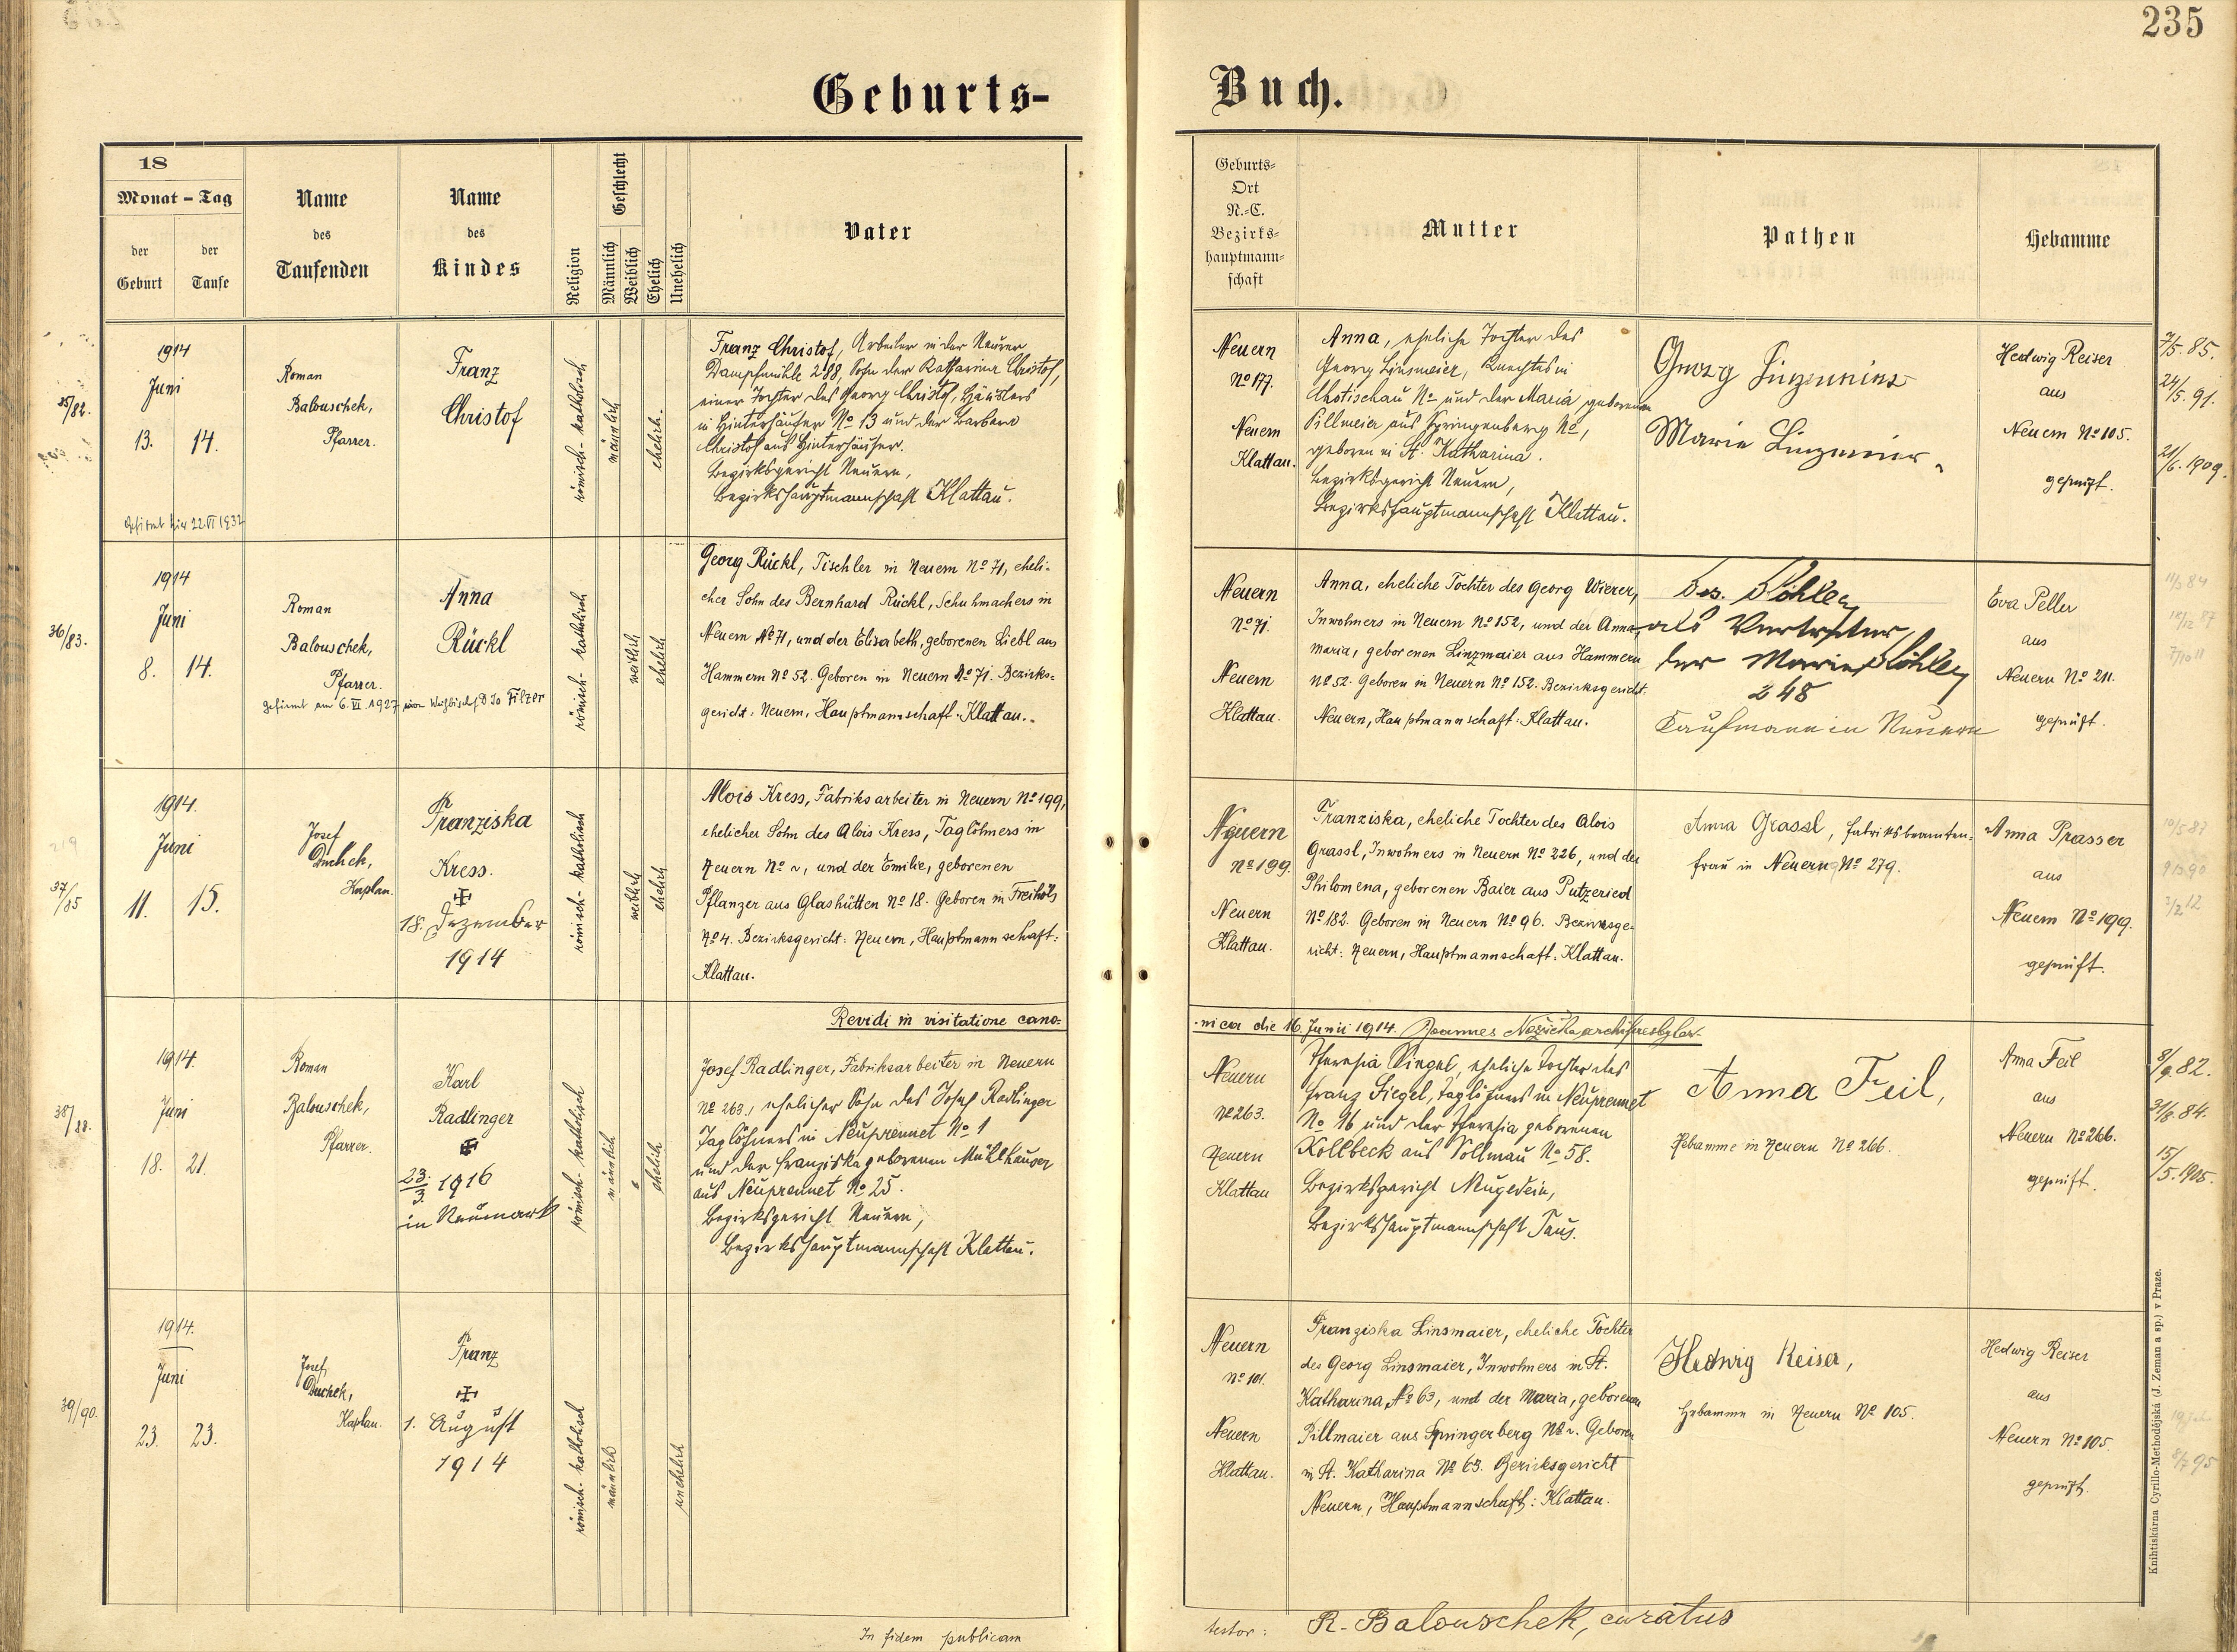 235
Geburts-
Buch.
18
Monat - Tag
der Geburt
der Taufe
Name des Taufenden
Name des Kindes
Religion
Geschlecht
Männlich
Weiblich
Ehelich
Unehelich
Vater
Geburts-
Ort
N.-C.
Bezirks-
hauptmann-
schaft
Mutter
Pathen
Hebamme
35/82.
1914
Juni
13. 14.
Gefirmt hier 22.VI 1932
Roman
Balouschek,
Pfarrer.
Franz
Christof
römisch-katholisch
männlich
ehelich.
Franz Christof, Arbeiter in der Neuerer
Dampfmühle 288, Sohn der Katharina Christof,
einer Tochter des Georg Christof, Häuslers
in Hinterhäuser No 13 und der Barbara
Christof aus Hinterhäuser.
Bezirksgericht Neuern,
Bezirkshauptmannschaft Klattau.
Neuern
No 177.
Neuern
Klattau.
Anna, eheliche Tochter des
Georg Linsmeier, Knechtes in
Chotischau No und der Maria geborenen
Pillmeier aus Springenberg No,
geboren in St. Katharina.
Bezirksgericht Neuern,
Bezirkshauptmannschaft Klattau.
Georg
Marie
Hedwig Reiser
aus
Neuern No 105.
geprüft.
7/5. 85.
24/5. 91.
21/6. 1909.
36/83.
1914
Juni
8. 14.
Roman
Balouschek,
Pfarrer.
gefirmt am 6. VI. 1927 von Weihbischof D Jo Filzer
Anna
Rückl
römisch-katholisch
weiblich
ehelich
Georg Rückl, Tischler in Neuern No 71, eheli-
cher Sohn des Bernhard Rückl, Schuhmachers in
Neuern No 71, und der Elisabeth, geborenen Liebl aus
Hammern No 52. Geboren in Neuern No 71. Bezirks-
gericht: Neuern, Hauptmannschaft: Klattau.
Neuern
No 71.
Neuern
Klattau.
Anna, eheliche Tochter des Georg Wierer,
Inwohners in Neuern No 152, und der Anna
Maria, geborenen Linzmaier aus Hammern
No 52. Geboren in Neuern No 152. Bezirksgericht
Neuern, Hauptmannschaft: Klattau.
als Vertreter
der Marie
248
Kaufmann in Neuern
Eva Peller
aus
Neuern No 211.
geprüft.
37/85
1914.
Juni
11. 15.
Josef
Duchek,
Kaplan.
Franziska
Kress.
18. Dezember
1914
römisch-katholisch
weiblich
ehelich
Alois Kress, Fabriksarbeiter in Neuern No 199,
ehelicher Sohn des Alois Kress, Taglöhners in
Neuern No ~, und der Emilie, geborenen
Pflanzer aus Glashütten No 18. Geboren in Freihöls
No 4. Bezirksgericht: Neuern, Hauptmannschaft:
Klattau.
Neuern
No 199.
Neuern
Klattau.
Franziska, eheliche Tochter des Alois
Grassl, Inwohners in Neuern No 226, und der
Philomena, geborenen Baier aus Putzeried
No 182. Geboren in Neuern No 96. Bezirksge-
richt: Neuern, Hauptmannschaft: Klattau.
Anna Grassl, Fabriksbeamten-
frau in Neuern No 279.
Anna Prasser
aus
Neuern No 199.
geprüft.
Revidi in visitatione cano-
nica die 16. Junii 1914. Joannes
38/88.
1914.
Juni
18. 21.
Roman
Balouschek,
Pfarrer.
Karl
Radlinger
23./3. 1916
in Neumark
römisch-katholisch
männlich
ehelich
Josef Radlinger, Fabriksarbeiter in Neuern
No 263., ehelicher Sohn des Josef Radlinger
Taglöhners in Neuprennet No 1
und der Franziska geborenen Mühlhauser
aus Neuprennet No 25.
Bezirksgericht Neuern,
Bezirkshauptmannschaft Klattau.
Neuern
No 263.
Neuern
Klattau
Theresia Siegel, eheliche Tochter des
Franz Siegel, Taglöhners in Neuprennet
No 16 und der Theresia geborenen
Kollbeck aus Sollmau No 58.
Bezirksgericht Neugedein,
Bezirkshauptmannschaft Taus.
Anna Feil,
Hebamme in Neuern No 266.
Anna Feil
aus
Neuern No 266.
geprüft.
8/9. 82.
31/8. 84.
15/5. 1905.
39/90.
1914.
Juni
23. 23.
Josef
Duchek,
Kaplan.
Franz
1. August
1914
römisch-katholisch
männlich
unehelich
Neuern
No 101.
Neuern
Klattau.
Franziska Linsmaier, eheliche Tochter
des Georg Linsmaier, Inwohners in St.
Katharina No 63, und der Maria, geborenen
Pillmaier aus Springerberg No ~. Geboren
in St. Katharina No 63. Bezirksgericht
Neuern, Hauptmannschaft: Klattau.
Hedwig Reiser,
Hebamme in Neuern No 105.
Hedwig Reiser
aus
Neuern No 105.
geprüft.
In fidem publicam
testor: R. Balouschek, curatus
Knihtiskárna Cyrillo-Methodějská (J. Zeman a sp.) v Praze.